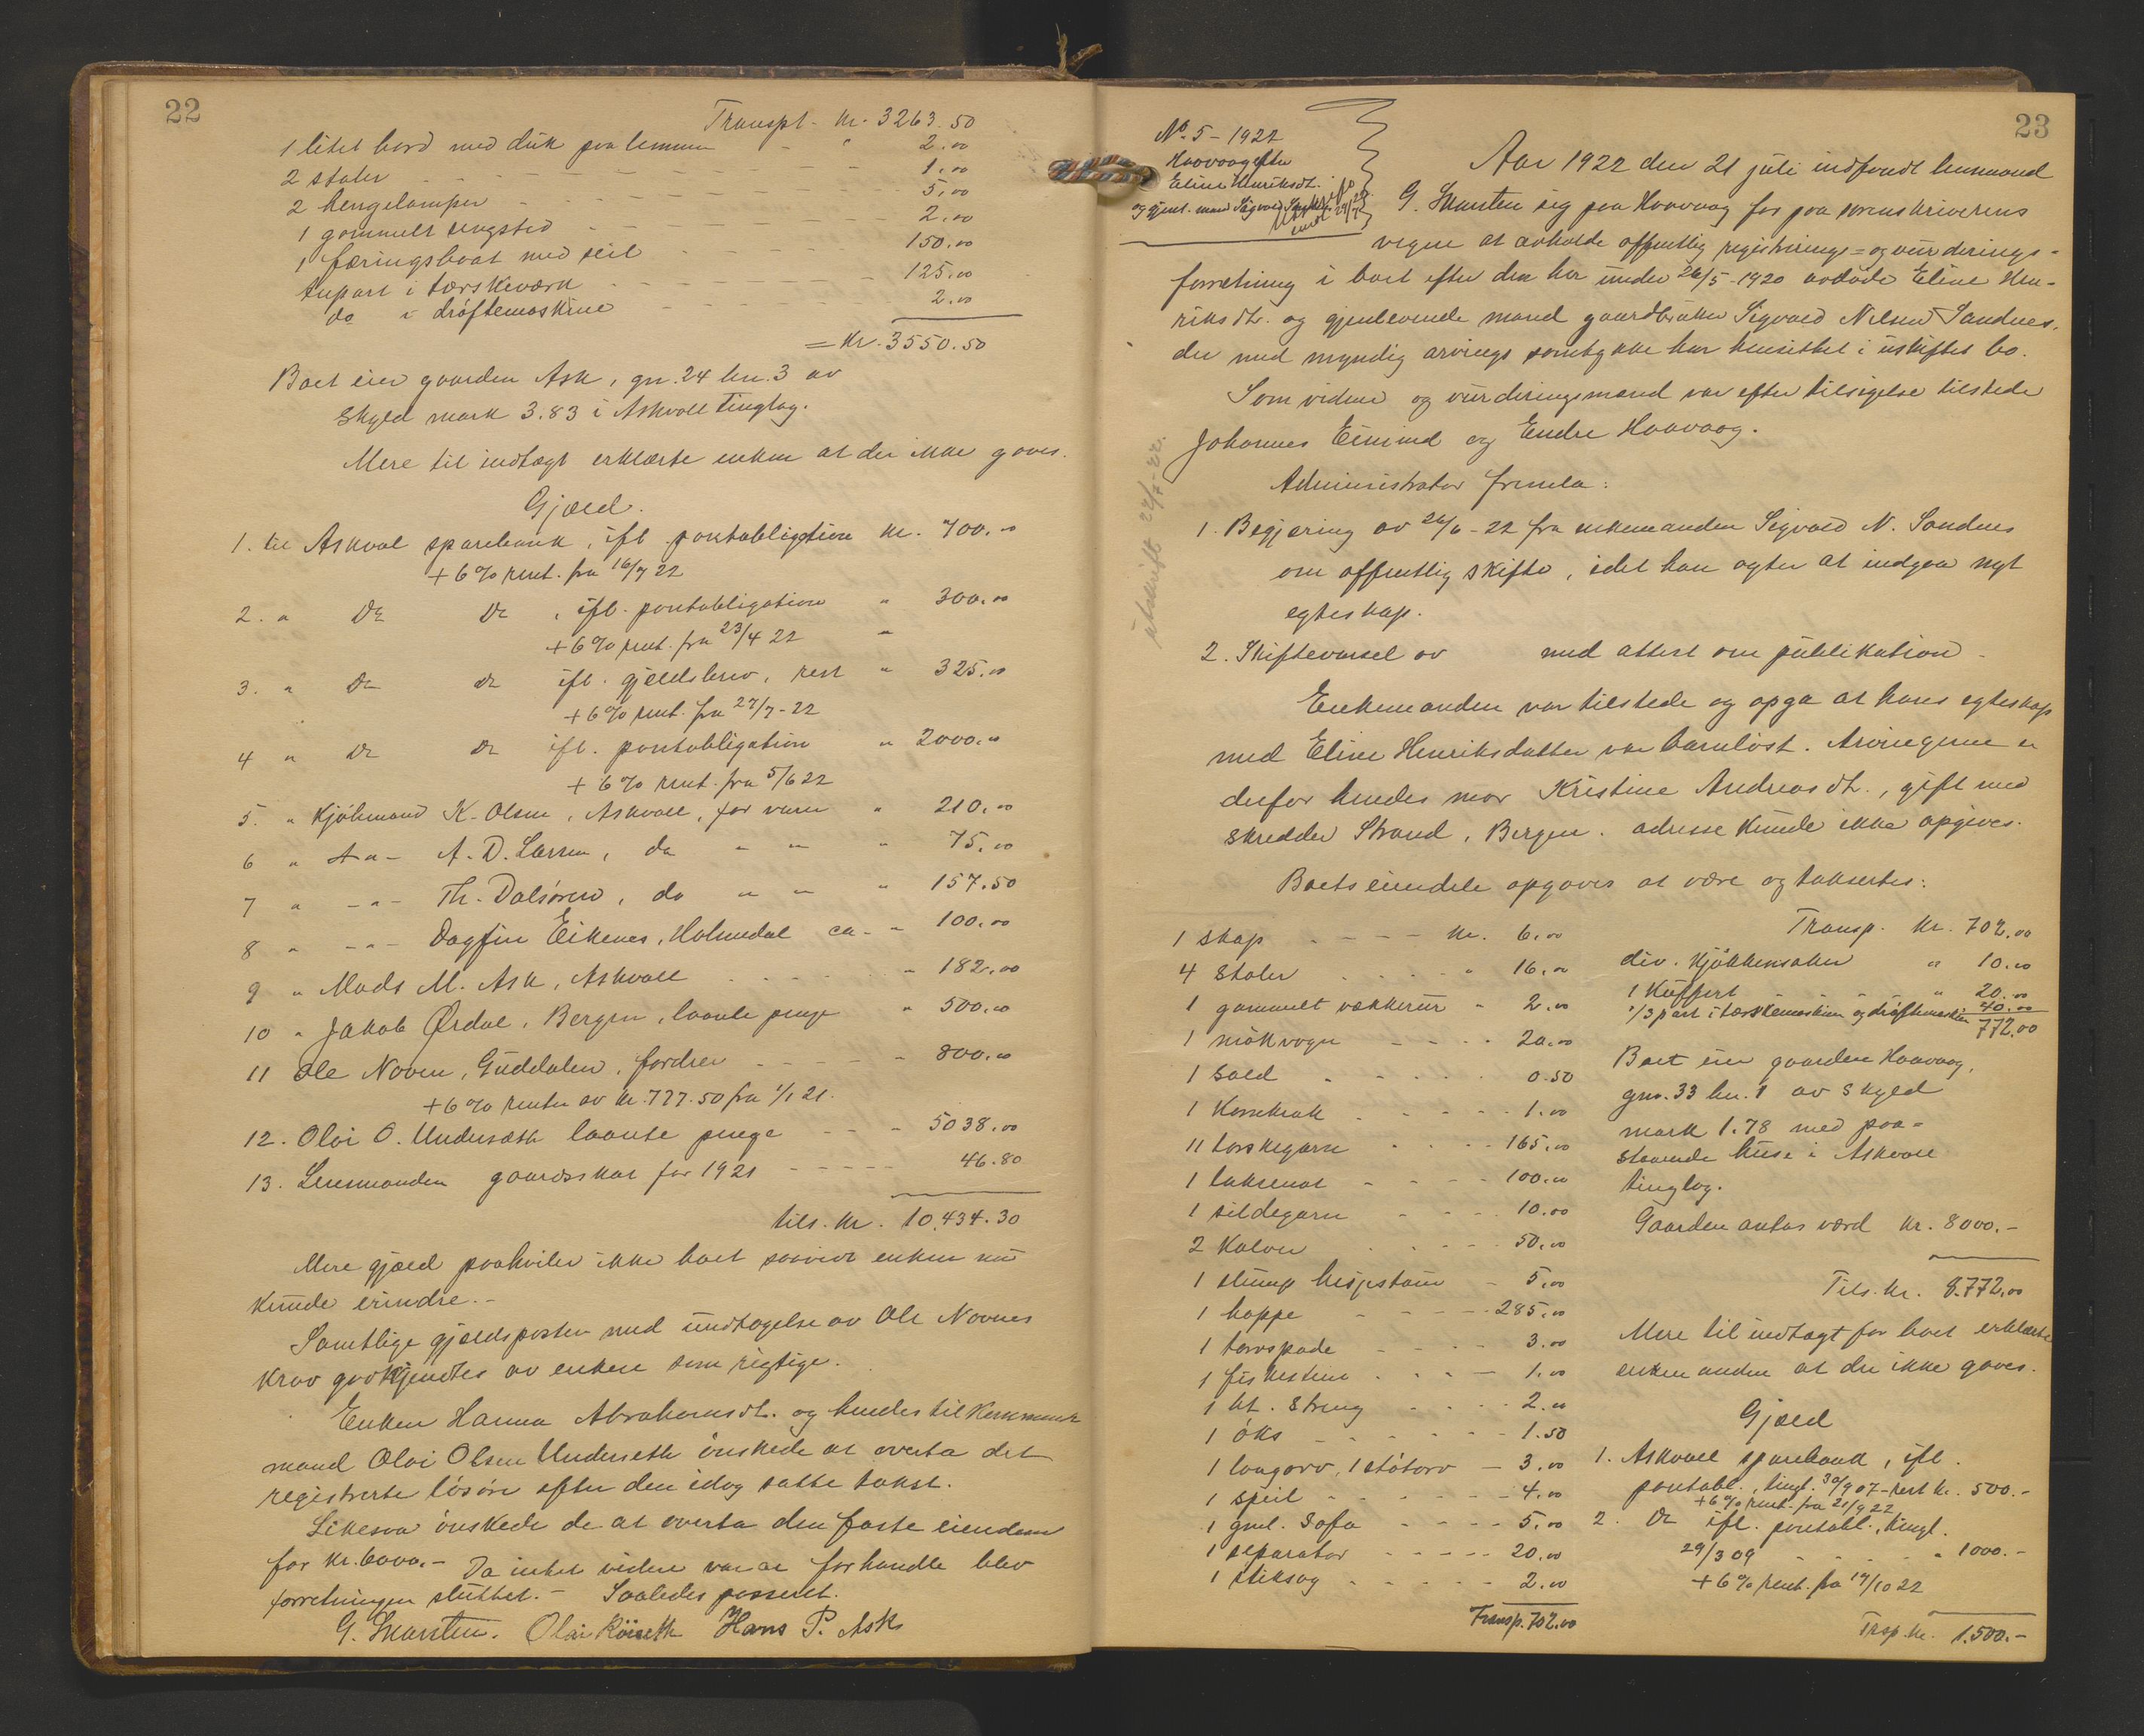 22
Transpt. kr. 3263.50
1 litet bord med duk paa lemmen - " 2.00
2 stoler 1.00
2 hengelamper 5.00
1 gammelt sengsted 2.00
1 færingsbaat med seil 150.00
part i tærskeværk 125.00
do i drøftemaskine 2.00
= kr. 3550.50
Boet eier gaarden Ask, gn. 24 bn. 3 av
skyld mark 3.83 i Askvoll tinglag.
Mere til indtægt erklærte enken at der ikke gaves.
Gjæld.
1. til Askvol sparebank, ifl. pantobligation kr. 700.00
+ 6% rent. fra 16/7 22
2. " Do Do, ifl. pantobligation " 300.00
+ 6% rent. fra 23/4 22 "
3. " Do do ifl. gjeldsbrev, rest " 325.00
+ 6% rent. fra 27/7-22
4 " Do Do ifl. pantobligation " 2000.00
+ 6% rent. fra 5/6 22
5. " Kjøbmand K. Olsen, Askvoll, for varer " 210.00
6 " -"- A. D. Larsen, do " " " 75.00
7 " -"- Th. Dalsøren, do " " " 157.50
8 " -"- Dagfin Eikenes, Holmedal ca. " 100.00
9 " Mads M. Ask, Askvoll " 182.00
10 " Jakob Ørdal, Bergen, laante penge " 500.00
11 Ole Noven, Guddalen, fordrer " 800.00
+ 6% renter av kr. 727.50 fra 1/1 21.
12. Olai O. Underseth laante penge - - - 5038.00
13. Lensmanden gaardsskat for 1921 - - - - - 46.80
tils. kr. 10,434.30
Mere gjæld paahviler ikke boet saavidt enken nu
kunde erindre.-
Samtlige gjældsposter med undtagelse av Ole Novnes
krav godkjendtes av enken som rigtige.
Enken Hanna Abrahamsdt. og hendes tilkommende
mand Olai Olsen Underseth ønskede at overta det
registrerte løsøre efter den idag satte takst.
Likesaa ønskede de at overta den faste eiendom
for kr. 6000.- Da intet videre var at forhandle blev
forretningen sluttet.- Saaledes passeret.
G. Olai Hans P. Ask
23
No. 5 - 1922
Haavaag efter
Eline Henriksdt.
og gjenl. mand Sigvald
utskrift
utskrift 29/7-22.
Aar 1922 den 21 juli indfandt lensmand
G. sig paa Haavaag for paa sorenskriverens
vegne at avholde offentlig registrerings- og vurderings-
forretning i boet efter den her under 26/5-1920 avdøde Eline Hen-
riksdt. og gjenlevende mand gaardbruker Sigvald Nilsen Sandnes,
der med myndig arvings samtykke har hensittet i uskiftet bo.
Som vidner og vurderingsmænd var efter tilsigelse tilstede
Johannes og Endre Haavaag.
Administrator fremla:
1. Begjæring av 26/6-22 fra enkemanden Sigvald N. Sandnes
om offentlig skifte, idet han agter at indgaa nyt
egteskap.
2. Skiftevarsel av med attest om publikation.
Enkemanden var tilstede og opga at hans egteskap
med Eline Henriksdatter var barnløst. Arvingerne er
derfor hendes mor Kristine Andreasdt., gift med
skredder Strand, Bergen. adresse kunde ikke opgives.
Boets eiendele opgaves at være og taksertes:
1 skap - - - - kr. 6.00
4 stoler " 16.00
1 gammelt vækkerur " 2.00
1 møkvogn 20.00
1 sold 0.50
1 1.00
11 torskegarn 165.00
1 laksenot 100.00
1 sildegarn 10.00
2 kalver 50.00
1 stump hesjestaur 5.00
1 hoppe 285.00
1 torvspade 3.00
1 1.00
1 bt. streng 2.00
1 øks 1.50
1 langorv, 1 støtorv - 3.00
1 speil 4.00
1 gml. sofa 5.00
1 separator 20.00
1 stiksag 2.00
Transp. 702.00
Transp. kr. 702.00
div. kjøkkensaker " 10.00
1 kuffert " 20.00
1/3 part i tærskemaskin og drøftemaskin 40.00
772.00
Boet eier gaarden Haavaag,
gnr. 33 bn. 1 av skyld
mark 1.78 med paa-
staaende huse i Askvoll
tinglag.
Gaarden antas værd kr. 8000.-
Tils. kr. 8.772.00
Mere til indtægt for boet erklærte
enkemanden at der ikke gaves.
Gjæld
1. Askvoll sparebank, ifl.
pantobl., tingl. 30/9 07 - rest kr. 500.-
+ 6% rent. fra 21/9 22
2. Do ifl. pantobl., tingl.
29/3 09 " 1000.-
+ 6% rent. fra 14/10 22
Trsp. kr. 1.500.-